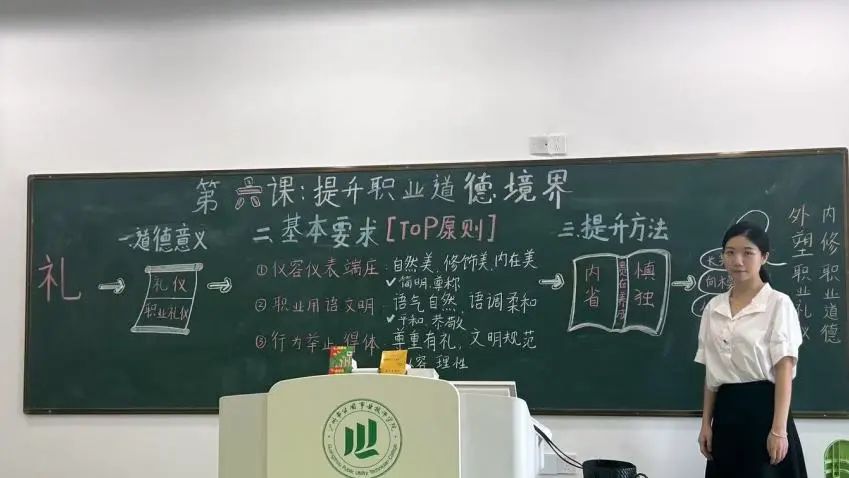 第六课:提升职业道德境界
礼
一.道德意义
礼仪
职业礼仪
二.基本要求[ToP原则]
①仪容仪表端庄:自然美、修饰美、内在美
✓简明、要称
②职业用语文明:语气自然、语调柔和
✓平和、恭敬
③行为举止得体:尊重有礼、文明规范
容理性
三.提升方法
内省
慎独
内修职业道德
外塑职业礼仪
Guangzhou Public Utility Technician College